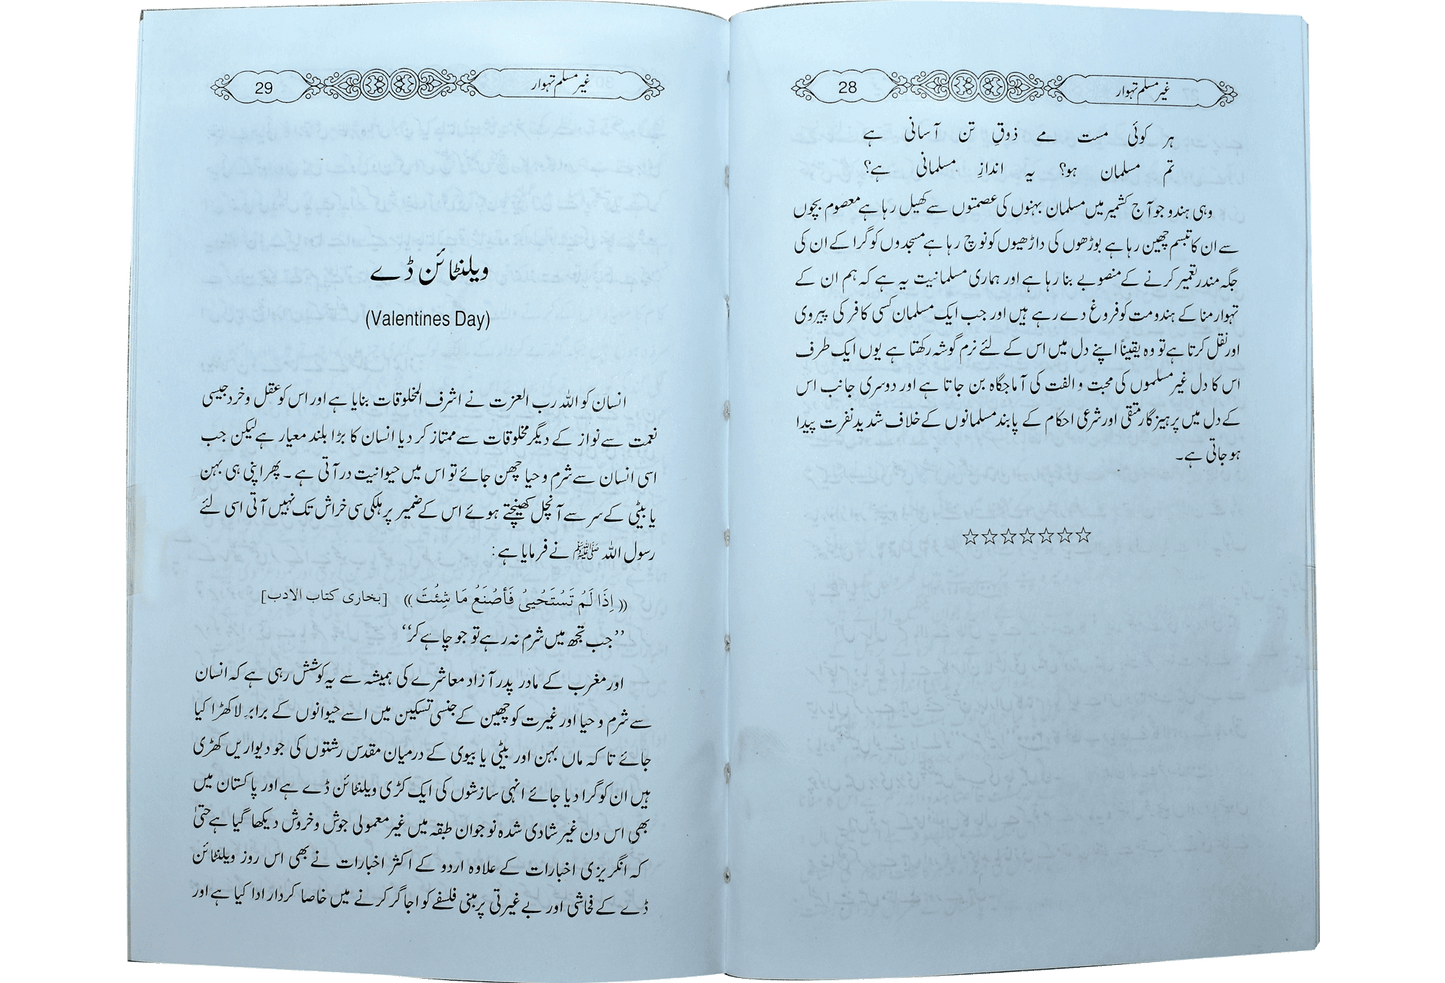 غیر مسلم تہوار 28
ہر کوئی مست مے ذوقِ تن آسانی ہے
تم مسلمان ہو؟ یہ اندازِ مسلمانی ہے؟
وہی ہندو جو آج کشمیر میں مسلمان بہنوں کی عصمتوں سے کھیل رہا ہے معصوم بچوں
سے ان کا تبسم چھین رہا ہے بوڑھوں کی داڑھیوں کو نوچ رہا ہے مسجدوں کو گرا کے ان کی
جگہ مندر تعمیر کرنے کے منصوبے بنا رہا ہے اور ہماری مسلمانیت یہ ہے کہ ہم ان کے
تہوار منا کے ہندومت کو فروغ دے رہے ہیں اور جب ایک مسلمان کسی کافر کی پیروی
اور نقل کرتا ہے تو وہ یقیناً اپنے دل میں اس کے لئے نرم گوشہ رکھتا ہے یوں ایک طرف
اس کا دل غیر مسلموں کی محبت و الفت کی آماجگاہ بن جاتا ہے اور دوسری جانب اس
کے دل میں پرہیزگار متقی اور شرعی احکام کے پابند مسلمانوں کے خلاف شدید نفرت پیدا
ہو جاتی ہے۔
☆☆☆☆☆☆☆
غیر مسلم تہوار 29
ویلنٹائن ڈے
(Valentines Day)
انسان کو اللہ رب العزت نے اشرف المخلوقات بنایا ہے اور اس کو عقل و خرد جیسی
نعمت سے نواز کے دیگر مخلوقات سے ممتاز کر دیا انسان کا بڑا بلند معیار ہے لیکن جب
اسی انسان سے شرم و حیا چھن جائے تو اس میں حیوانیت در آتی ہے۔ پھر اپنی ہی بہن
یا بیٹی کے سر سے آنچل کھینچتے ہوئے اس کے ضمیر پر ہلکی سی خراش تک نہیں آتی اسی لئے
رسول اللہ ﷺ نے فرمایا ہے:
((اِذَا لَمْ تَسْتَحْيِىْ فَأصْنَعْ مَا شِئْتَ)) [بخاری کتاب الادب]
’’جب تجھ میں شرم نہ رہے تو جو چاہے کر‘‘
اور مغرب کے مادر پدر آزاد معاشرے کی ہمیشہ سے یہ کوشش رہی ہے کہ انسان
سے شرم و حیا اور غیرت کو چھین کے جنسی تسکین میں اسے حیوانوں کے برابر لا کھڑا کیا
جائے تا کہ ماں بہن اور بیٹی یا بیوی کے درمیان مقدس رشتوں کی جو دیواریں کھڑی
ہیں ان کو گرا دیا جائے انہی سازشوں کی ایک کڑی ویلنٹائن ڈے ہے اور پاکستان میں
بھی اس دن غیر شادی شدہ نوجوان طبقہ میں غیر معمولی جوش و خروش دیکھا گیا ہے حتیٰ
کہ انگریزی اخبارات کے علاوہ اردو کے اکثر اخبارات نے بھی اس روز ویلنٹائن
ڈے کے فحاشی اور بے غیرتی پر مبنی فلسفے کو اجاگر کرنے میں خاصا کردار ادا کیا ہے اور